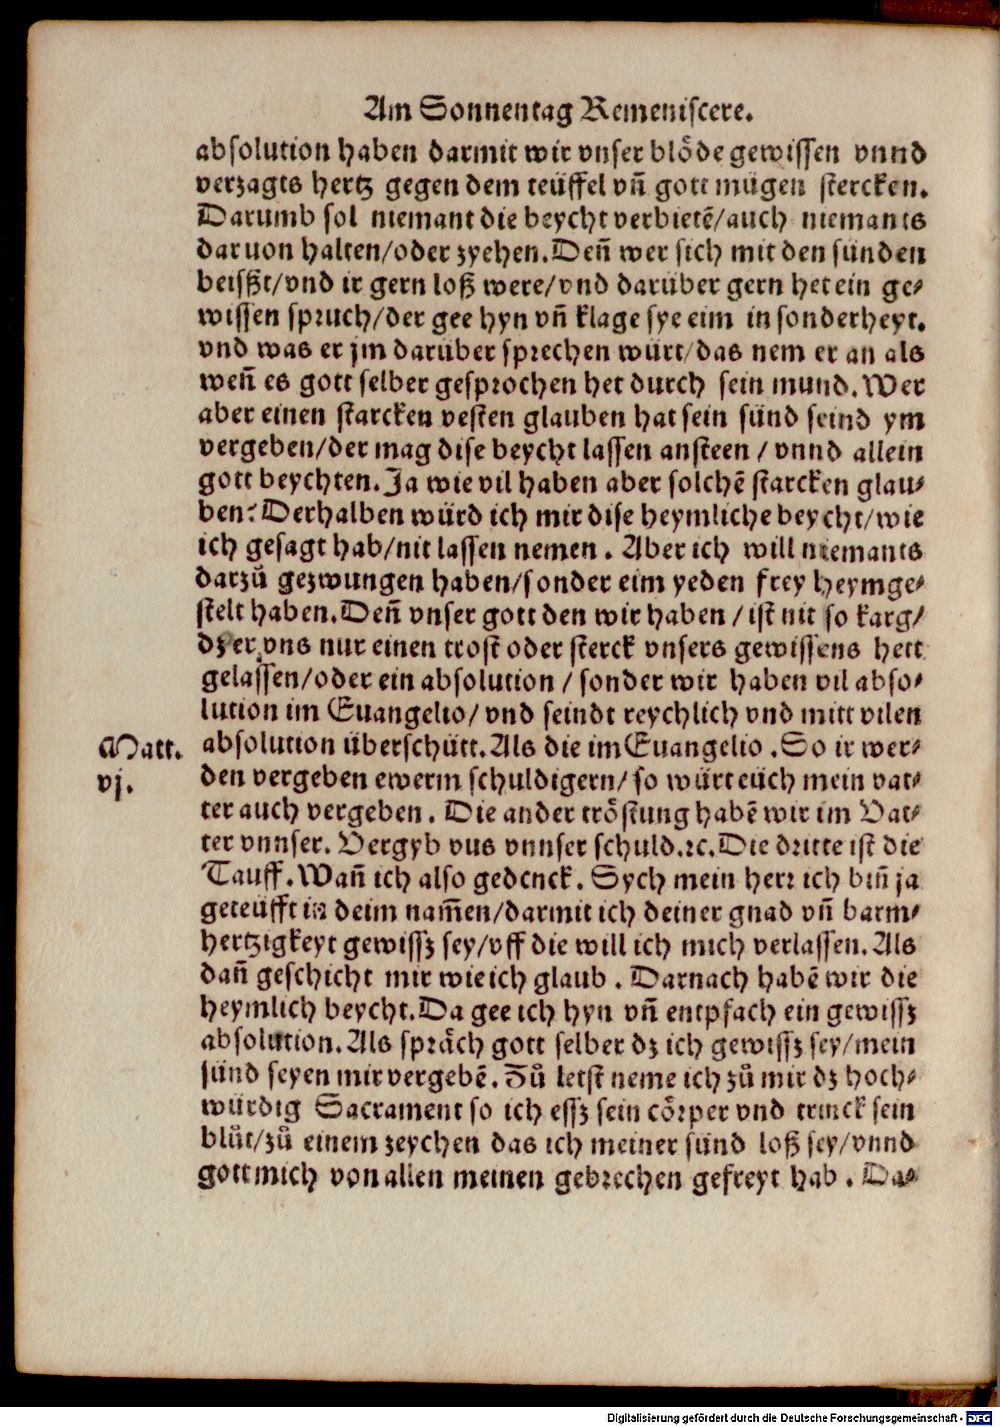 Am Sonnentag Remeniscere.
absolution haben darmit wir vnser blöde gewissen vnnd
verzagts hertz gegen dem teüffel vñ gott mügen stercken.
Darumb sol niemant die beycht verbietẽ/auch niemants
daruon halten/oder zyehen. Deñ wer sich mit den sünden
beisßt/vnd ir gern loß were/vnd darüber gern het ein ge⸗
wissen spruch/der gee hyn vñ klage sye eim in sonderheyt.
vnd was er jm darüber sprechen würt/das nem er an als
weñ es gott selber gesprochen het durch sein mund. Wer
aber einen starcken vesten glauben hat sein sünd seind ym
vergeben/der mag dise beycht lassen ansteen / vnnd allein
gott beychten. Ja wie vil haben aber solchẽ starcken glau⸗
ben? Derhalben würd ich mir dise heymliche beycht/wie
ich gesagt hab/nit lassen nemen . Aber ich will niemants
darzů gezwungen haben/sonder eim yeden frey heymge⸗
stelt haben. Deñ vnser gott den wir haben / ist nit so karg/
dz er vns nur einen trost oder sterck vnsers gewissens hett
gelassen/oder ein absolution / sonder wir haben vil abso⸗
lution im Euangelio/ vnd seindt reychlich vnd mitt vilen
Matt.
vj.
absolution überschütt. Als die im Euangelio . So ir wer⸗
den vergeben ewerm schuldigern/ so würt eüch mein vat⸗
ter auch vergeben . Die ander tröstung habẽ wir im Vat⸗
ter vnnser. Vergyb vns vnnser schuld.ꝛc. Die dritte ist die
Tauff. Wañ ich also gedenck. Sych mein herr ich biñ ja
geteüfft in deim nam̃en/darmit ich deiner gnad vñ barm⸗
hertzigkeyt gewissz sey/vff die will ich mich verlassen. Als
dañ geschicht mir wie ich glaub . Darnach habẽ wir die
heymlich beycht. Da gee ich hyn vñ entpfach ein gewissz
absolution. Als spräch gott selber dz ich gewissz sey/mein
sünd seyen mir vergebẽ. Zů letst neme ich zů mir dz hoch⸗
würdig Sacrament so ich essz sein cörper vnd trinck sein
blůt/zů einem zeychen das ich meiner sünd loß sey/vnnd
gott mich von allen meinen gebrechen gefreyt hab . Da⸗
Digitalisierung gefördert durch die Deutsche Forschungsgemeinschaft - DFG